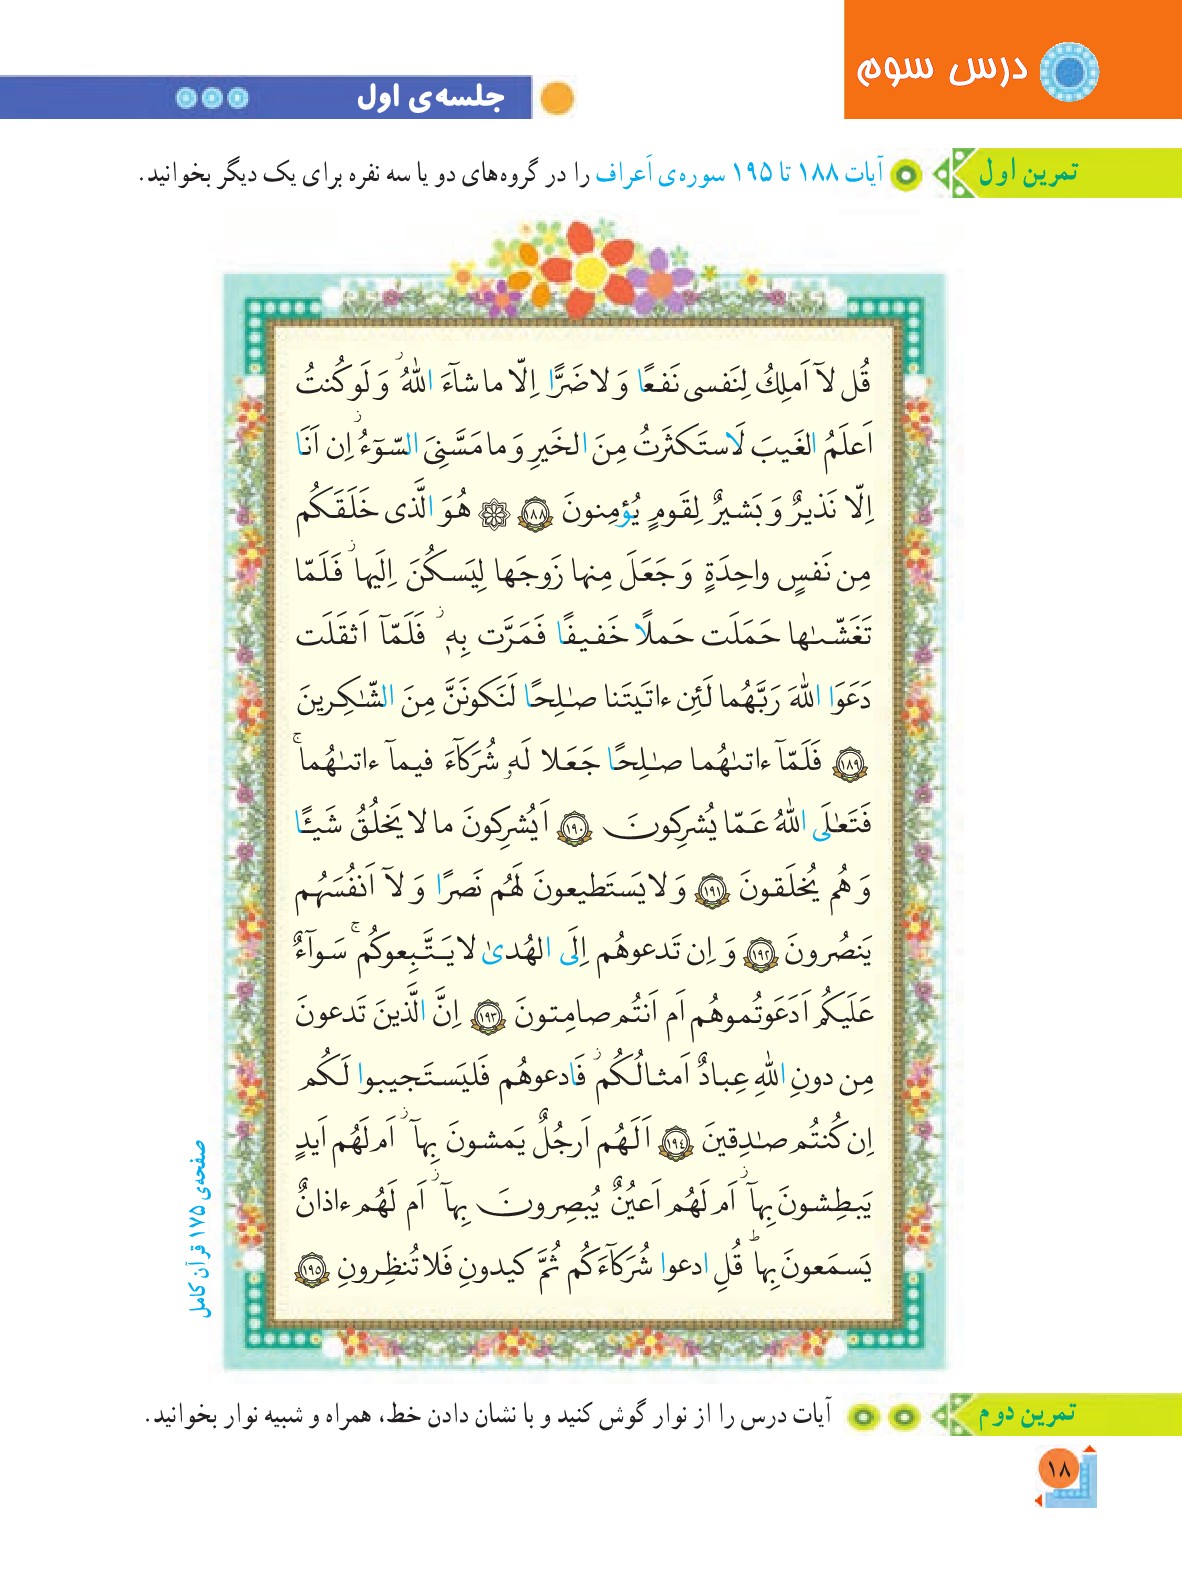 درس سوم
جلسه‌ی اول
تمرین اول
آیات ۱۸۸ تا ۱۹۵ سوره‌ی اَعراف را در گروه‌های دو یا سه نفره برای یک دیگر بخوانید.
قُل لآ اَملِكُ لِنَفسی نَفعًا وَ لا ضَرًّا اِلّا ما شآءَ اللّٰهُ ۚ وَ لَو كُنتُ
اَعلَمُ الغَیبَ لَاستَكثَرتُ مِنَ الخَیرِ وَ ما مَسَّنِیَ السّوٓءُ ۚ اِن اَنَا
اِلّا نَذیرٌ وَ بَشیرٌ لِقَومٍ یُؤمِنونَ ۱۸۸ هُوَ الَّذی خَلَقَكُم
مِن نَفسٍ واحِدَةٍ وَ جَعَلَ مِنها زَوجَها لِیَسكُنَ اِلَیها ۚ فَلَمّا
تَغَشّىٰها حَمَلَت حَملًا خَفیفًا فَمَرَّت بِه۪ ۚ فَلَمّآ اَثقَلَت
دَعَوَا اللّٰهَ رَبَّهُما لَئِن ءاتَیتَنا صٰلِحًا لَنَكونَنَّ مِنَ الشّٰكِرینَ
۱۸۹ فَلَمّآ ءاتىٰهُما صٰلِحًا جَعَلا لَهٗ شُرَكآءَ فیمآ ءاتىٰهُما ۚ
فَتَعٰلَى اللّٰهُ عَمّا یُشرِكونَ ۱۹۰ اَیُشرِكونَ ما لا یَخلُقُ شَیئًا
وَ هُم یُخلَقونَ ۱۹۱ وَ لا یَستَطیعونَ لَهُم نَصرًا وَ لآ اَنفُسَهُم
یَنصُرونَ ۱۹۲ وَ اِن تَدعوهُم اِلَى الهُدىٰ لا یَتَّبِعوكُم ۚ سَوآءٌ
عَلَیكُم اَدَعَوتُموهُم اَم اَنتُم صامِتونَ ۱۹۳ اِنَّ الَّذینَ تَدعونَ
مِن دونِ اللّٰهِ عِبادٌ اَمثالُكُم ۚ فَادعوهُم فَلیَستَجیبوا لَكُم
اِن كُنتُم صٰدِقینَ ۱۹۴ اَلَهُم اَرجُلٌ یَمشونَ بِهآ ۚ اَم لَهُم اَیدٍ
یَبطِشونَ بِهآ ۚ اَم لَهُم اَعیُنٌ یُبصِرونَ بِهآ ۚ اَم لَهُم ءاذانٌ
یَسمَعونَ بِها ۗ قُلِ ادعوا شُرَكآءَكُم ثُمَّ كیدونِ فَلا تُنظِرونِ ۱۹۵
صفحه‌ی ۱۷۵ قرآن کامل
تمرین دوم
آیات درس را از نوار گوش کنید و با نشان دادن خط، همراه و شبیه نوار بخوانید.
۱۸